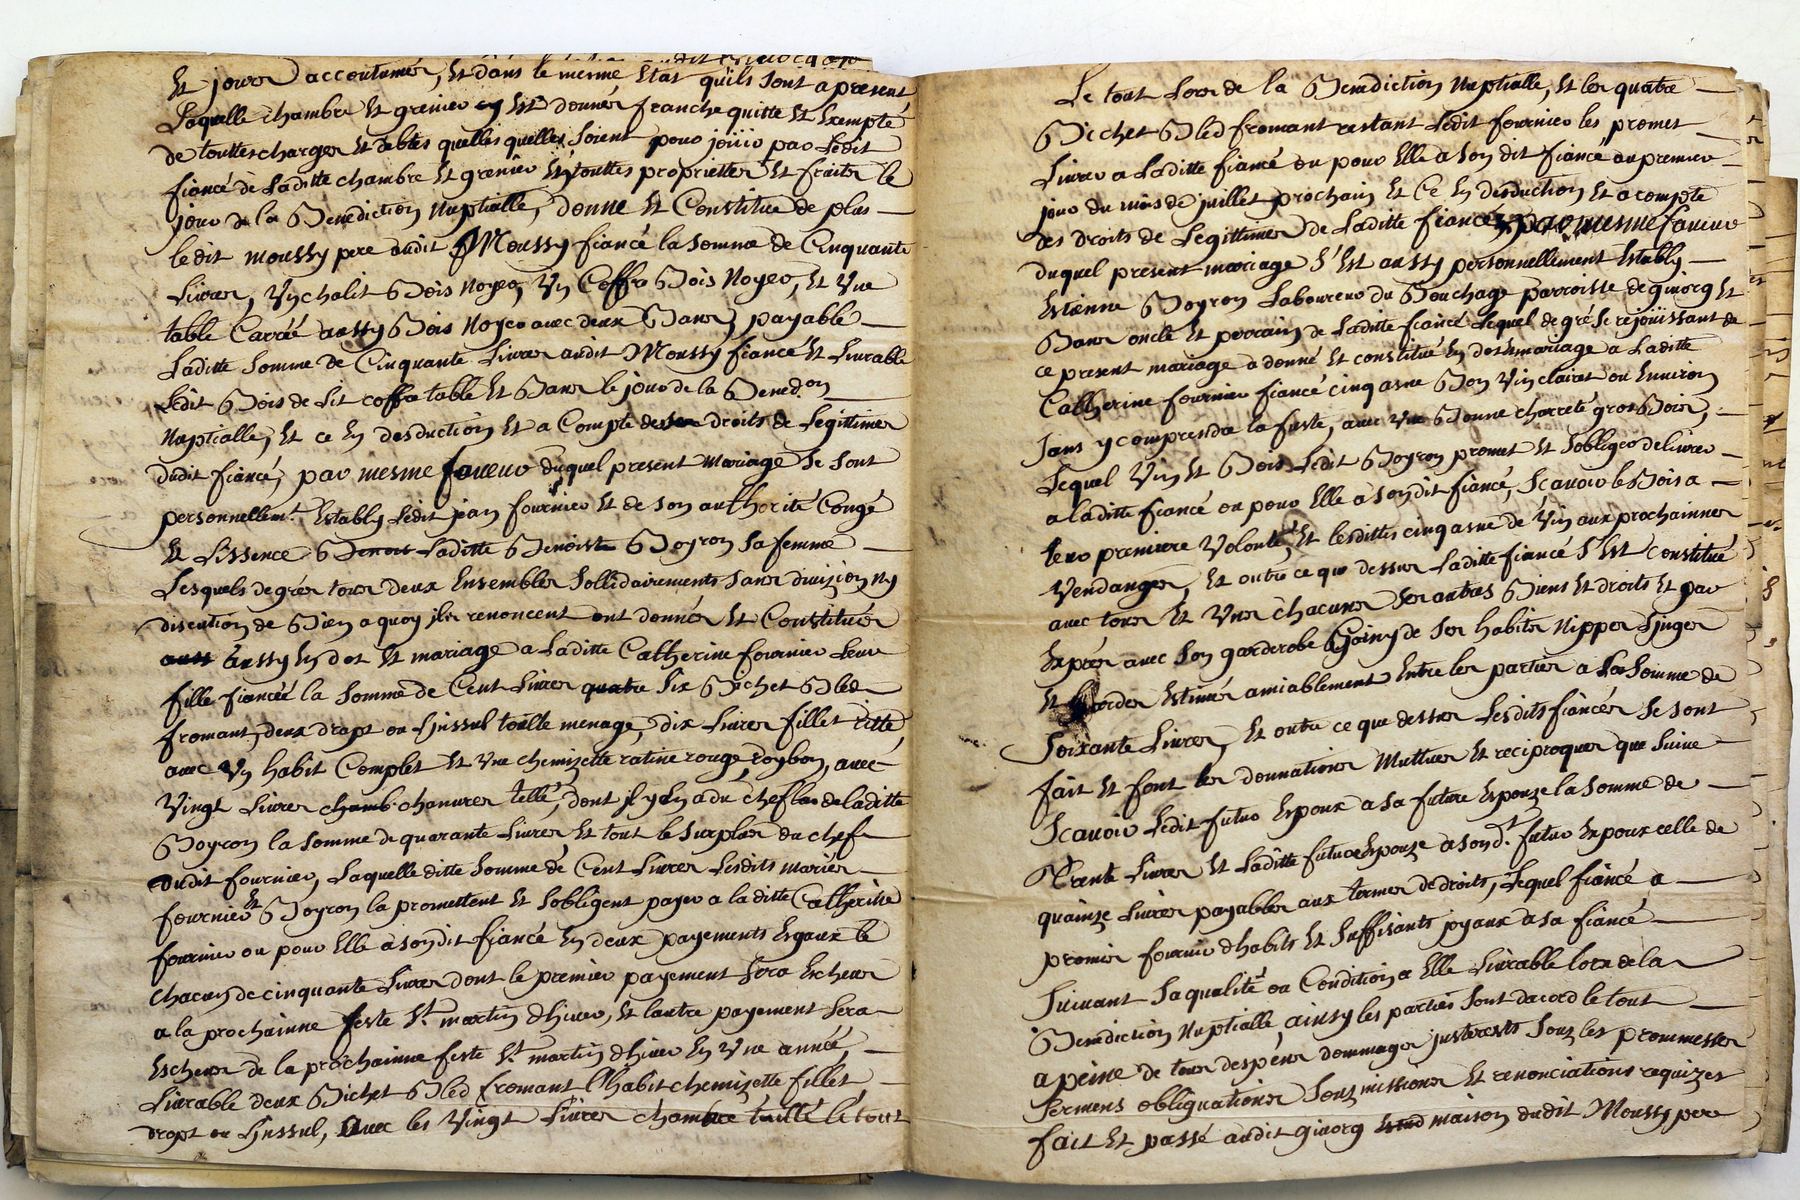 Et jours accoutumés, Et dans le mesme Etat quils sont a present
Laquelle chambre Et grenier est donnés franche quitte Et Exempte
de touttes charges Et debtes quelles quelles soient pour joüir par Ledit
fiancé de Laditte chambre Et grenier En touttes proprietter Et fraits le
jour de la Benediction Nuptialle, donne Et Constitue de plus
ledit moussy pere audit Moussy fiancé la somme de Cinquante
Livres, Un chalit Bois Noyer, Un Coffre Bois Noyer, Et Une
table Carrée aussy Bois Noyer avec deux Bans, payable
Laditte somme de Cinquante Livres audit Moussy fiancé Et Livrable
Ledit Bois de Lit coffre table Et Bans le jour de la Bened.on
Nuptialle, Et ce En desduction Et a Compte des droits de Legittimes
dudit fiancé, par mesme faveur duquel present Mariage Se sont
personnellem.t Establÿ Ledit jean fournier Et de son authorité Congé
Et Lissence Laditte Benoiste Boyron sa femme
Lesquels de gres tous deux Ensembles sollidairements sans division ny
discution de Bien a quoy ils renoncent ont donnés Et Constitués
aussy En dot Et mariage a Laditte Catherine fournier Leur
fille fiancée la somme de Cent Livres quatre Six Bichet Bled
fromant, deux drapt ou Linssul toille menage, dix Livres fillet ritte
avec Un habit Complet Et Une chemizette ratine rouge, roybon, avec
Vingt Livres chanvres tellé, dont il y En a du chef de laditte
Boyron la somme de quarante Livres Et tout le surplus du chef
dudit fournier, Laquelle ditte somme de Cent Livres Lesdits mariés
fournier Et Boyron la promettent Et sobligent payer a laditte Catherine
fournier ou pour Elle a son dit fiancé En deux payements Esgaux le
chacun de cinquante Livres dont le premier payement sera Escheus
a la prochainne feste S.t martin dhiver, Et lautre payement sera
Escheus de la prochainne feste S.t martin dhiver En Une année,
Livrable deux Bichet Bled fromant Lhabit chemizette fillet
drapt ou Linssul, Avec les Vingt Livres taillé le tout
Le tout Lors de la Benediction Nuptialle, Et les quatre
Bichet Bled fromant restant Ledit fournier les promet
Livrer a Laditte fiancé ou pour Elle a son dit fiancé au premier
jour du mois de juillet prochain Et Ce En desduction Et a compte
des droits de Legittimes de Laditte fiancé, par mesme faveur
duquel present mariage S'Est aussy personnellement Establÿ
Estienne Boyron Laboureur du Bouchage parroisse de givorg Et
Bans oncle Et parrain de Laditte fiancé Lequel de gré Se rejoüissant de
ce present mariage a donné Et constitué En dot Et mariage a Laditte
Catherine fournier fiancé cinq asne Bon Vin clairat ou Environ
sans y comprendre la futte, avec Une Bonne charreté gros Bois,
Lequel Vin Et Bois Ledit Boyron promet Et Sobligeo de livrer
a laditte fiancé ou pour Elle a son dit fiancé, Scavoir le Bois a
leur premiere Volonté, Et lesdittes cinq asne de Vin aux prochainnes
Vendanges, Et outre ce que dessus Laditte fiancé S'Est Constitué
avec tous Et Uns chacuns Ses autres Biens Et droits Et par
Exprès avec Son garderobe Garny de Ses habits Nippes Linges
Et hardes Estimés amiablement Entre les parties a La Somme de
Soixante Livres, Et outre ce que dessus Lesdits fiancés Se sont
fait Et font les donnations Mutues Et reciproques que Suive
Scavoir Ledit futur Espoux a Sa future Espouze la somme de
Trente Livres Et Laditte future Espouze a son d.t futur Expoux celle de
quainze Livres payables aux termes de droits, Lequel fiancé a
promis fournir dhabits Et Suffisants joyaux a Sa fiancé
Suivant Sa qualité ou Condition a Elle Livrable lors de la
Benediction Nuptialle ainsy les parties sont dacord le tout
a peine de tous despens dommages justerests Sous les prommesses
Sermens obliguations Souzmissions Et renonciations requizes
fait Et passé audit givorg maison dudit Moussy pere